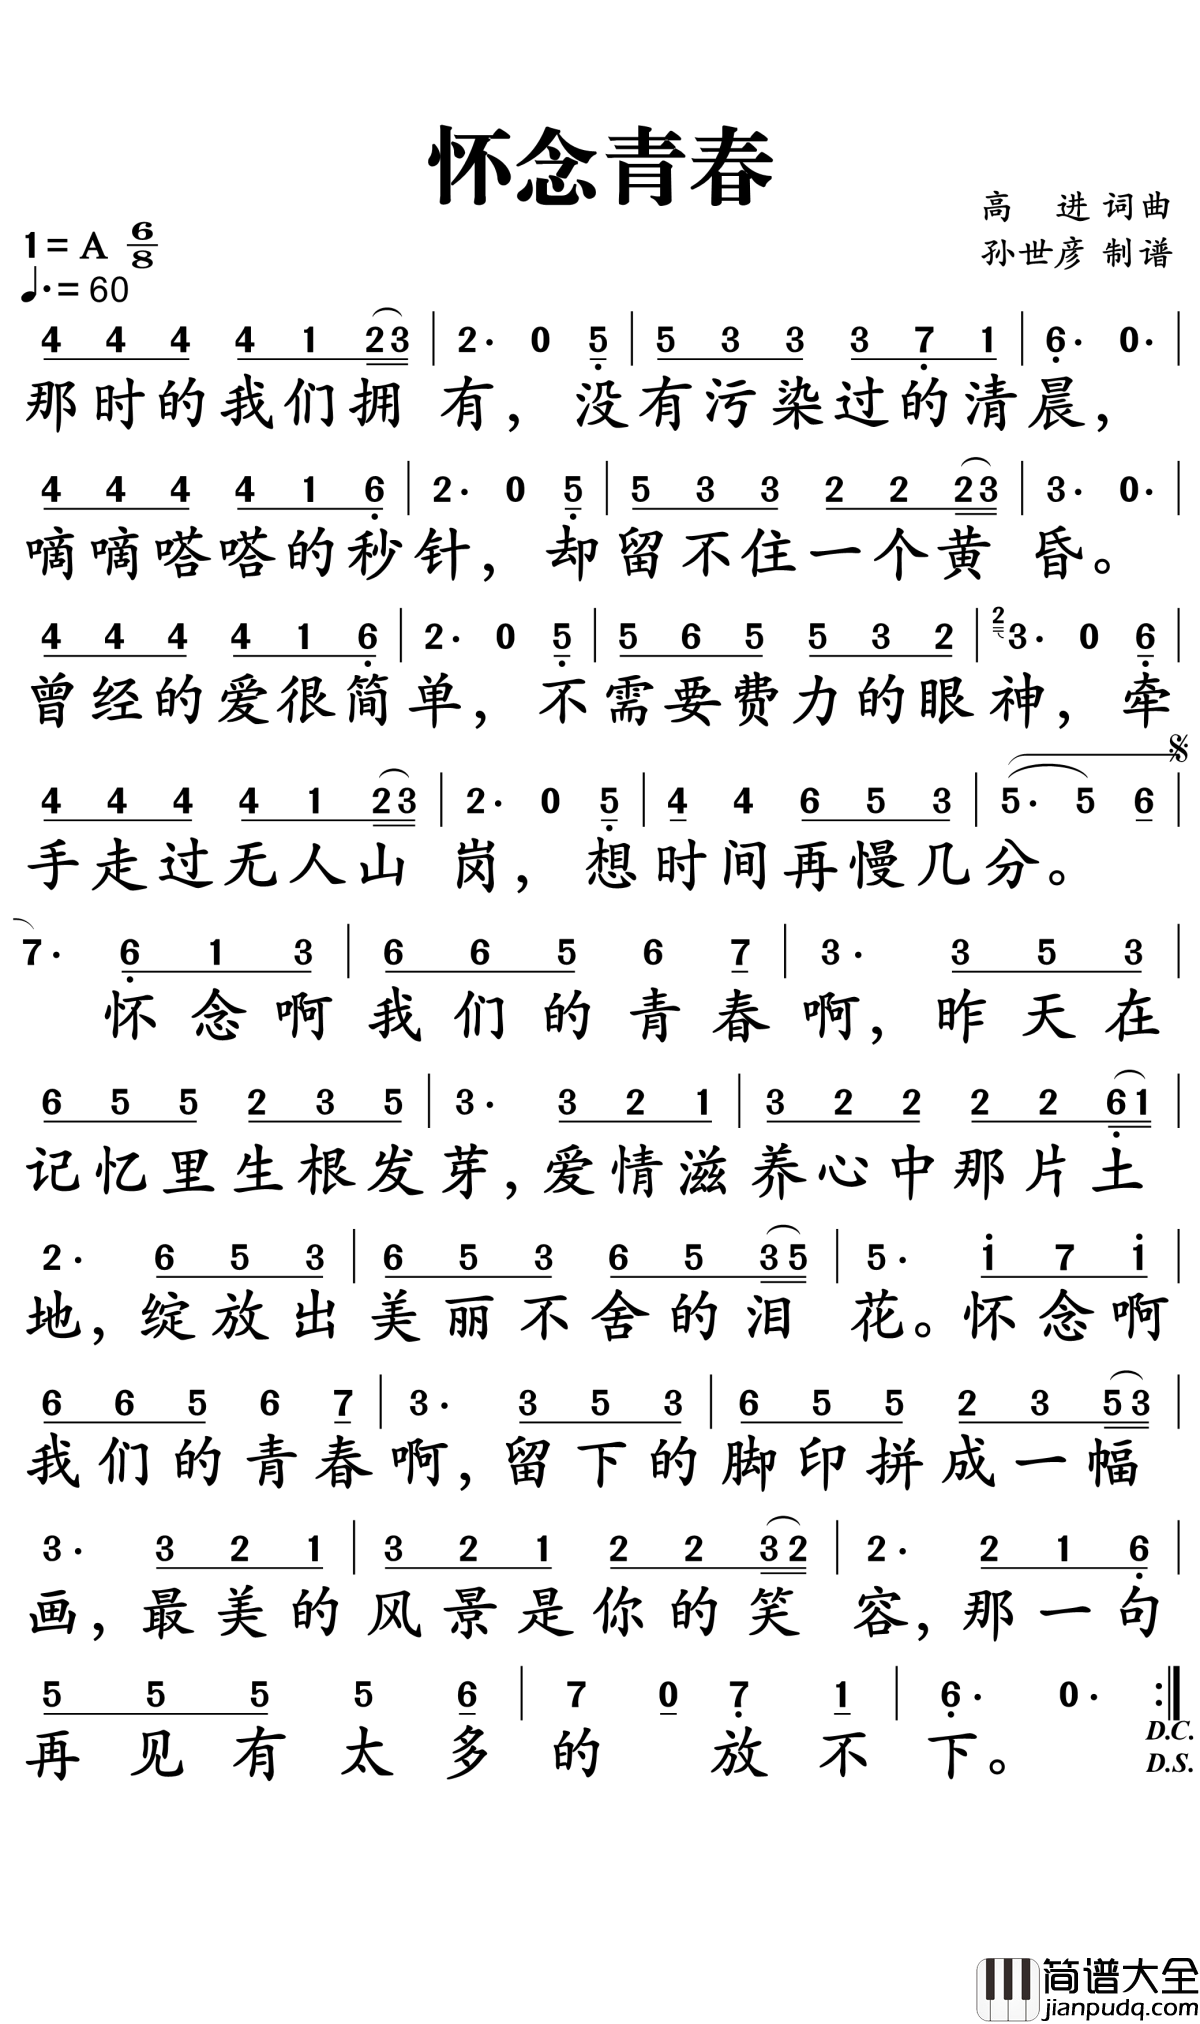 怀念青春
高 进 词曲
1= A 6/8
孙世彦 制谱
♩. = 60
4 4 4 4 1 2 3 | 2· 0 5̣ | 5 3 3 3 7̣ 1 | 6̣· 0· |
那时的我们拥 有，没有污染过的清晨，
4 4 4 4 1 6̣ | 2· 0 5̣ | 5 3 3 2 2 2 3 | 3· 0· |
嘀嘀嗒嗒的秒针，却留不住一个黄 昏。
4 4 4 4 1 6̣ | 2· 0 5̣ | 5 6 5 5 3 2 | 2 3· 0 6̣ |
曾经的爱很简单，不需要费力的眼神，牵
𝄋
4 4 4 4 1 2 3 | 2· 0 5̣ | 4 4 6 5 3 | 5· 5 6 |
手走过无人山 岗，想时间再慢几分。
7· 6̣ 1 3 | 6 6 5 6 7 | 3· 3 5 3 |
怀念啊我们的青春啊，昨天在
6 5 5 2 3 5 | 3· 3 2 1 | 3 2 2 2 2 6̣ 1 |
记忆里生根发芽，爱情滋养心中那片土
2· 6 5 3 | 6 5 3 6 5 3 5 | 5· 1̇ 7 1̇ |
地，绽放出美丽不舍的泪 花。怀念啊
6 6 5 6 7 | 3· 3 5 3 | 6 5 5 2 3 5 3 |
我们的青春啊，留下的脚印拼成一幅
3· 3 2 1 | 3 2 1 2 2 3 2 | 2· 2 1 6̣ |
画，最美的风景是你的笑 容，那一句
5 5 5 5 6 | 7 0 7̣ 1 | 6̣· 0· :||
再见有太多的 放不下。
D.C.
D.S.
简谱大全
jianpudq.com